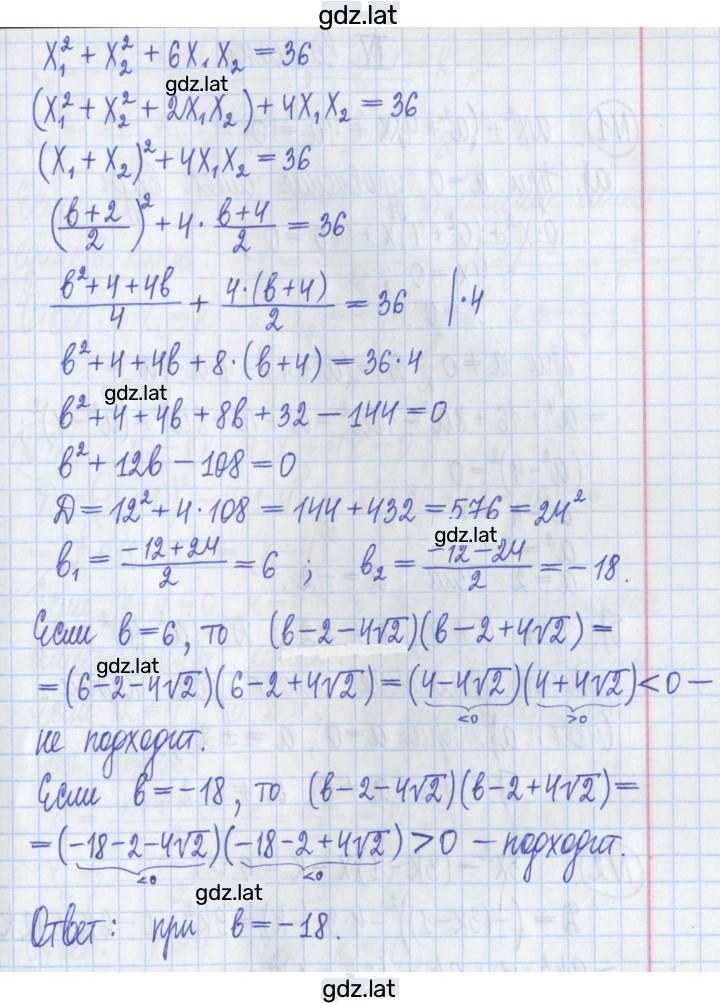 gdz.lat
x₁² + x₂² + 6x₁x₂ = 36
gdz.lat
(x₁² + x₂² + 2x₁x₂) + 4x₁x₂ = 36
(x₁ + x₂)² + 4x₁x₂ = 36
((в+2)/2)² + 4 · (в+4)/2 = 36
(в²+4+4в)/4 + (4·(в+4))/2 = 36 | ·4
в² + 4 + 4в + 8·(в+4) = 36·4
gdz.lat
в² + 4 + 4в + 8в + 32 − 144 = 0
в² + 12в − 108 = 0
Д = 12² + 4·108 = 144 + 432 = 576 = 24²
gdz.lat
в₁ = (−12+24)/2 = 6 ; в₂ = (−12−24)/2 = −18.
Если в=6, то (в−2−4√2)(в−2+4√2) =
gdz.lat
= (6−2−4√2)(6−2+4√2) = (4−4√2)(4+4√2) < 0 —
<0 >0
не подходит.
Если в=−18, то (в−2−4√2)(в−2+4√2) =
= (−18−2−4√2)(−18−2+4√2) > 0 — подходит.
<0 <0
gdz.lat
Ответ: при в=−18.
gdz.lat